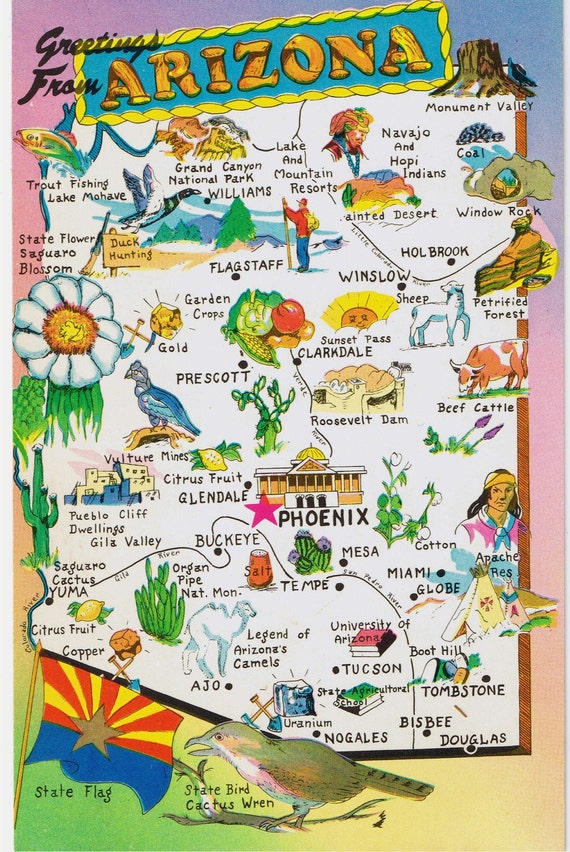 Greetings
From
ARIZONA
Monument Valley
Grand Canyon
National Park
Lake
And
Mountain
Resorts
Navajo
And
Hopi
Indians
Coal
Trout Fishing
Lake Mohave
WILLIAMS
ainted Desert
Window Rock
State Flower
Saguaro
Blossom
Duck
Hunting
FLAGSTAFF
Little Colorado River
HOLBROOK
WINSLOW
Sheep
Petrified
Forest
Garden
Crops
Gold
Sunset Pass
CLARKDALE
PRESCOTT
Verde
River
Roosevelt Dam
Beef Cattle
Vulture Mines
Citrus Fruit
GLENDALE
PHOENIX
Pueblo Cliff
Dwellings
Gila Valley
BUCKEYE
Cotton
Apache
Res.
MESA
Saguaro
Cactus
YUMA
Gila River
Organ
Pipe
Nat. Mon.
Salt
TEMPE
San Pedro River
MIAMI
GLOBE
Colorado River
Citrus Fruit
Copper
Legend of
Arizona's
Camels
University of
Arizona
Boot Hill
TUCSON
AJO
State Agricultural
School
TOMBSTONE
Uranium
NOGALES
BISBEE
DOUGLAS
State Flag
State Bird
Cactus Wren